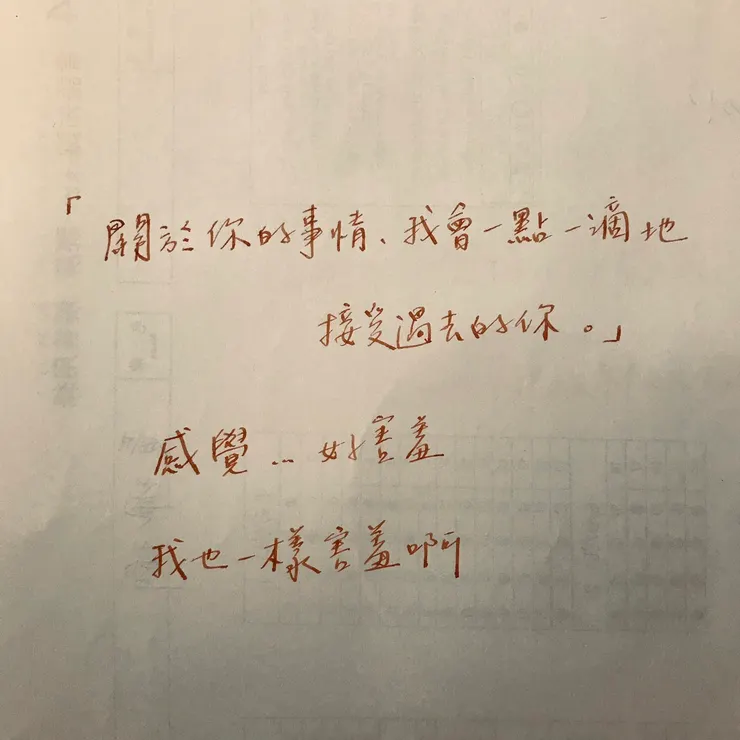 「關於你的事情、我會一點一滴地
接受過去的你。」
感覺…好害羞
我也一樣害羞啊